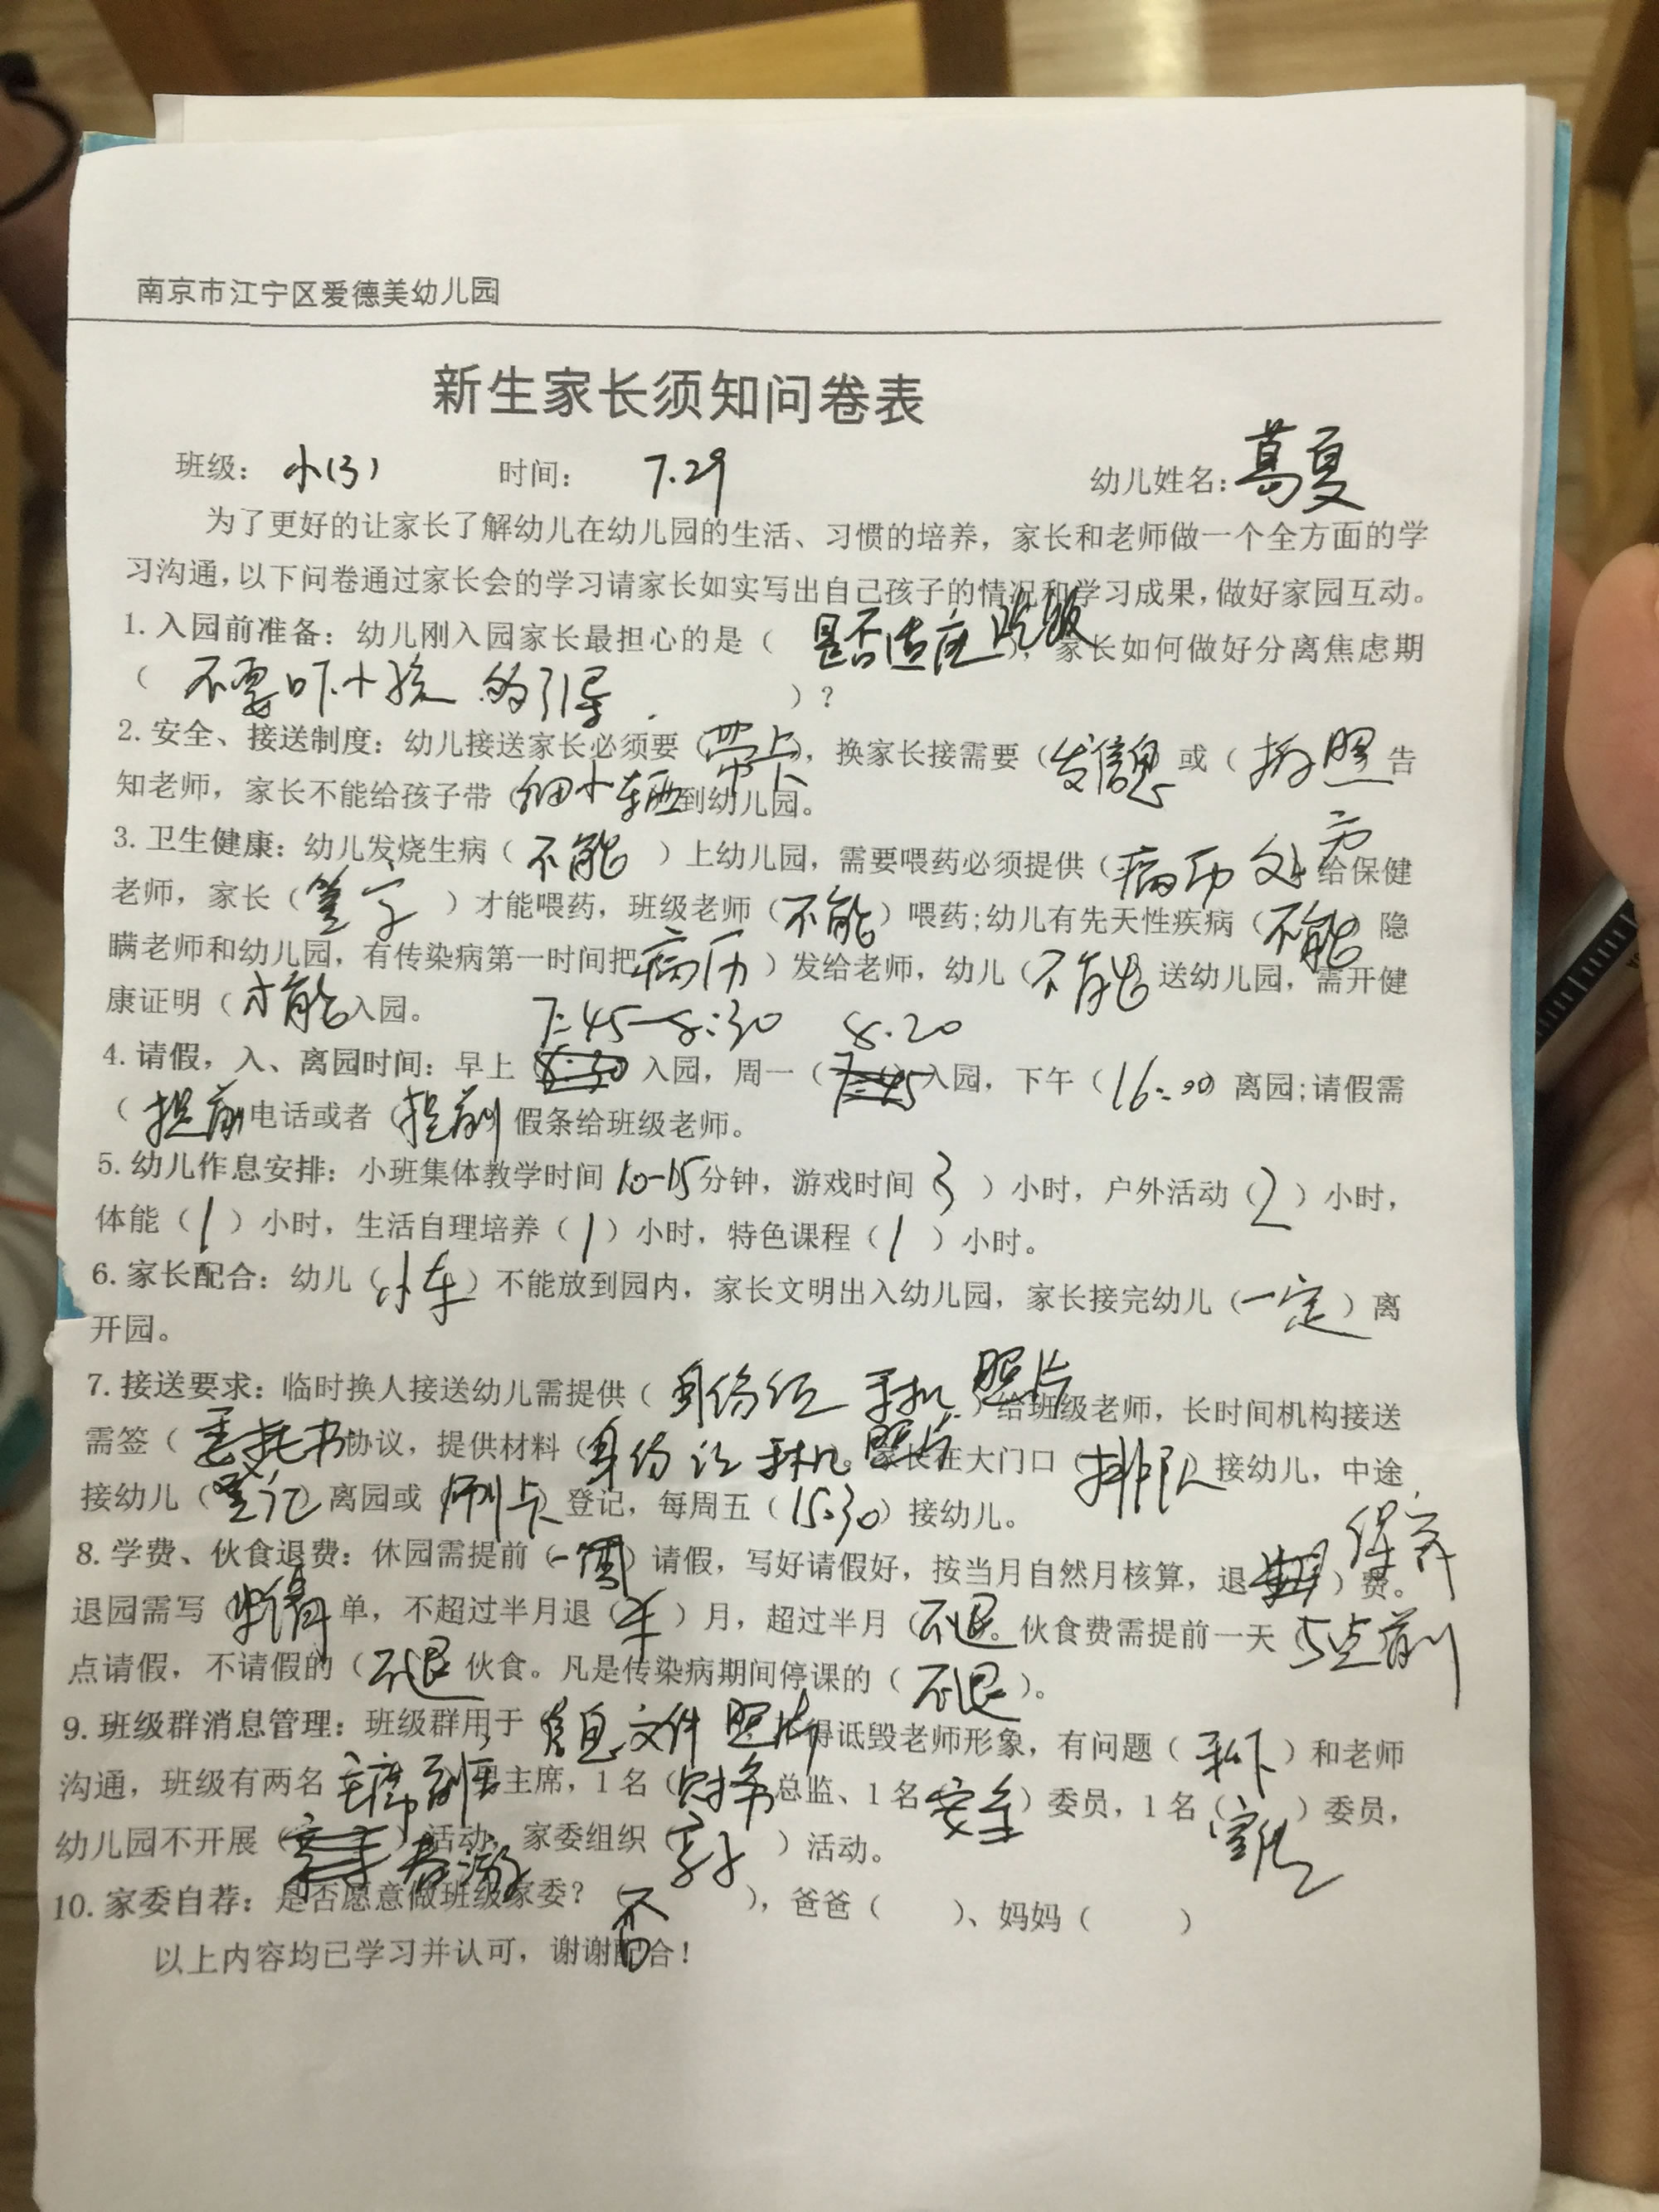 南京市江宁区爱德美幼儿园
新生家长须知问卷表
班级：小(3) 时间：7.29 幼儿姓名：葛夏
为了更好的让家长了解幼儿在幼儿园的生活、习惯的培养，家长和老师做一个全方面的学
习沟通，以下问卷通过家长会的学习请家长如实写出自己孩子的情况和学习成果，做好家园互动。
1. 入园前准备：幼儿刚入园家长最担心的是（是否适应），家长如何做好分离焦虑期
（不要吓小孩 的引导.）？
2. 安全、接送制度：幼儿接送家长必须要（带卡），换家长接需要（发信息 或（拍照 告
知老师，家长不能给孩子带（细小东西到幼儿园。
3. 卫生健康：幼儿发烧生病（不能）上幼儿园，需要喂药必须提供（病历 处方 给保健
老师，家长（签字）才能喂药，班级老师（不能）喂药；幼儿有先天性疾病（不能 隐
瞒老师和幼儿园，有传染病第一时间把 病历）发给老师，幼儿（不能 送幼儿园，需开健
康证明（才能 入园。
7:45-8:30 8.20
4. 请假，入、离园时间：早上 8:30 入园，周一（7:45 入园，下午（16:00）离园；请假需
（提前 电话或者（提前 假条给班级老师。
5. 幼儿作息安排：小班集体教学时间 10-15 分钟，游戏时间 3 ）小时，户外活动（2）小时，
体能（1）小时，生活自理培养（1）小时，特色课程（1）小时。
6. 家长配合：幼儿（小车）不能放到园内，家长文明出入幼儿园，家长接完幼儿（一定）离
开园。
7. 接送要求：临时换人接送幼儿需提供（身份证 手机 照片）给班级老师，长时间机构接送
需签（委托书 协议，提供材料（身份证 手机 照片 家长在大门口（排队 接幼儿，中途
接幼儿（登记 离园或 刷卡 登记，每周五（15:30）接幼儿。
8. 学费、伙食退费：休园需提前（一周）请假，写好请假好，按当月自然月核算，退 保育）费。
退园需写（申请 单，不超过半月退（半）月，超过半月（不退。伙食费需提前一天 5点前
点请假，不请假的（不退 伙食。凡是传染病期间停课的（不退）。
9. 班级群消息管理：班级群用于 信息 文件 照片 得诋毁老师形象，有问题（私下）和老师
沟通，班级有两名 主席 副 主席，1名（财务 总监、1名（安全）委员，1名（宣传）委员，
幼儿园不开展（春游 活动，家委组织（亲子）活动。
10. 家委自荐：是否愿意做班级家委？（否），爸爸（ ）、妈妈（ ）
以上内容均已学习并认可，谢谢配合！